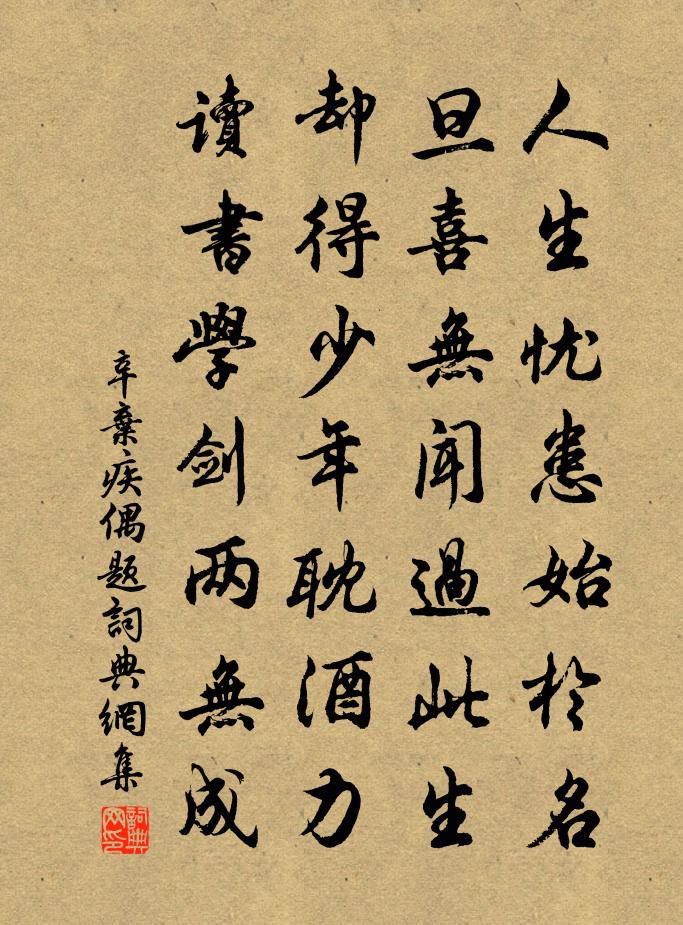 人生忧患始於名
旦喜無闻過此生
却得少年耽酒力
讀書學剑两無成
辛棄疾偶题詞典網集
詞典網印